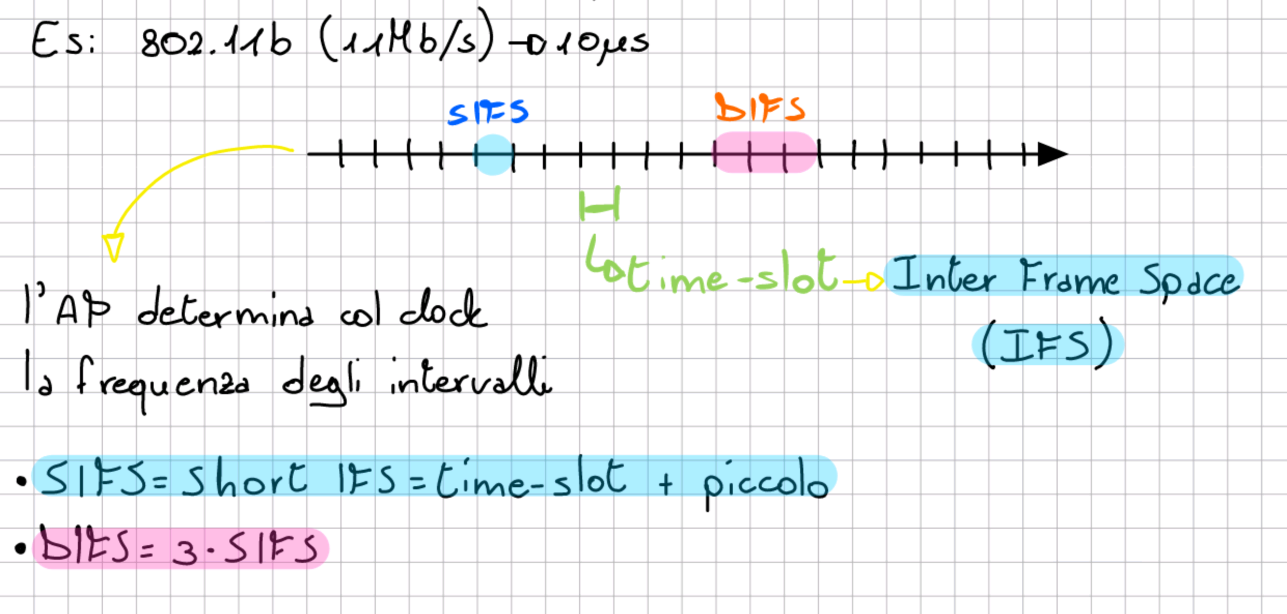 Es: 802.11b (11Mb/s) → 10μs
SIFS DIFS
time-slot → Inter Frame Space
(IFS)
l'AP determina col clock
la frequenza degli intervalli
• SIFS = Short IFS = time-slot + piccolo
• DIFS = 3 · SIFS